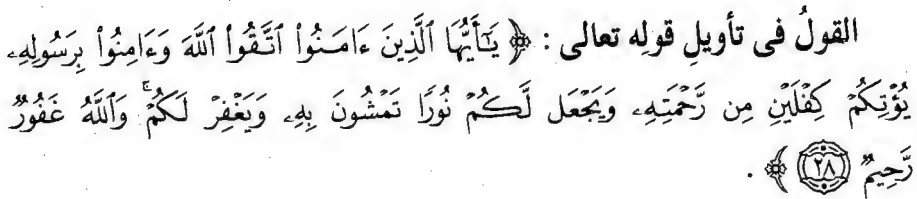 القولُ فى تأويلِ قولِه تعالى : ﴿ يَٰٓأَيُّهَا ٱلَّذِينَ ءَامَنُوا۟ ٱتَّقُوا۟ ٱللَّهَ وَءَامِنُوا۟ بِرَسُولِهِۦ
يُؤْتِكُمْ كِفْلَيْنِ مِن رَّحْمَتِهِۦ وَيَجْعَل لَّكُمْ نُورًا تَمْشُونَ بِهِۦ وَيَغْفِرْ لَكُمْ ۚ وَٱللَّهُ غَفُورٌ
رَّحِيمٌ ٢٨ ﴾ .